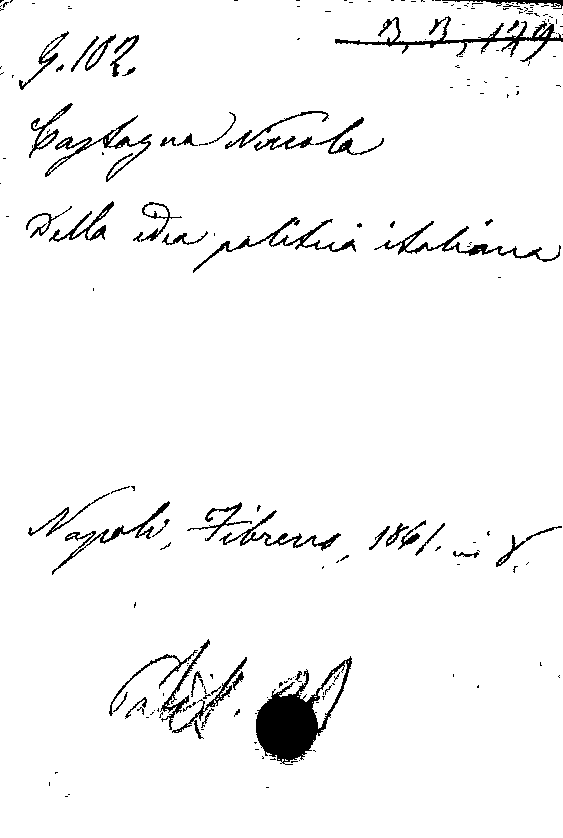 B. B. 129
G. 102.
Castagna Niccola
Della idea politica italiana
Napoli, Fibreno, 1861. in 8